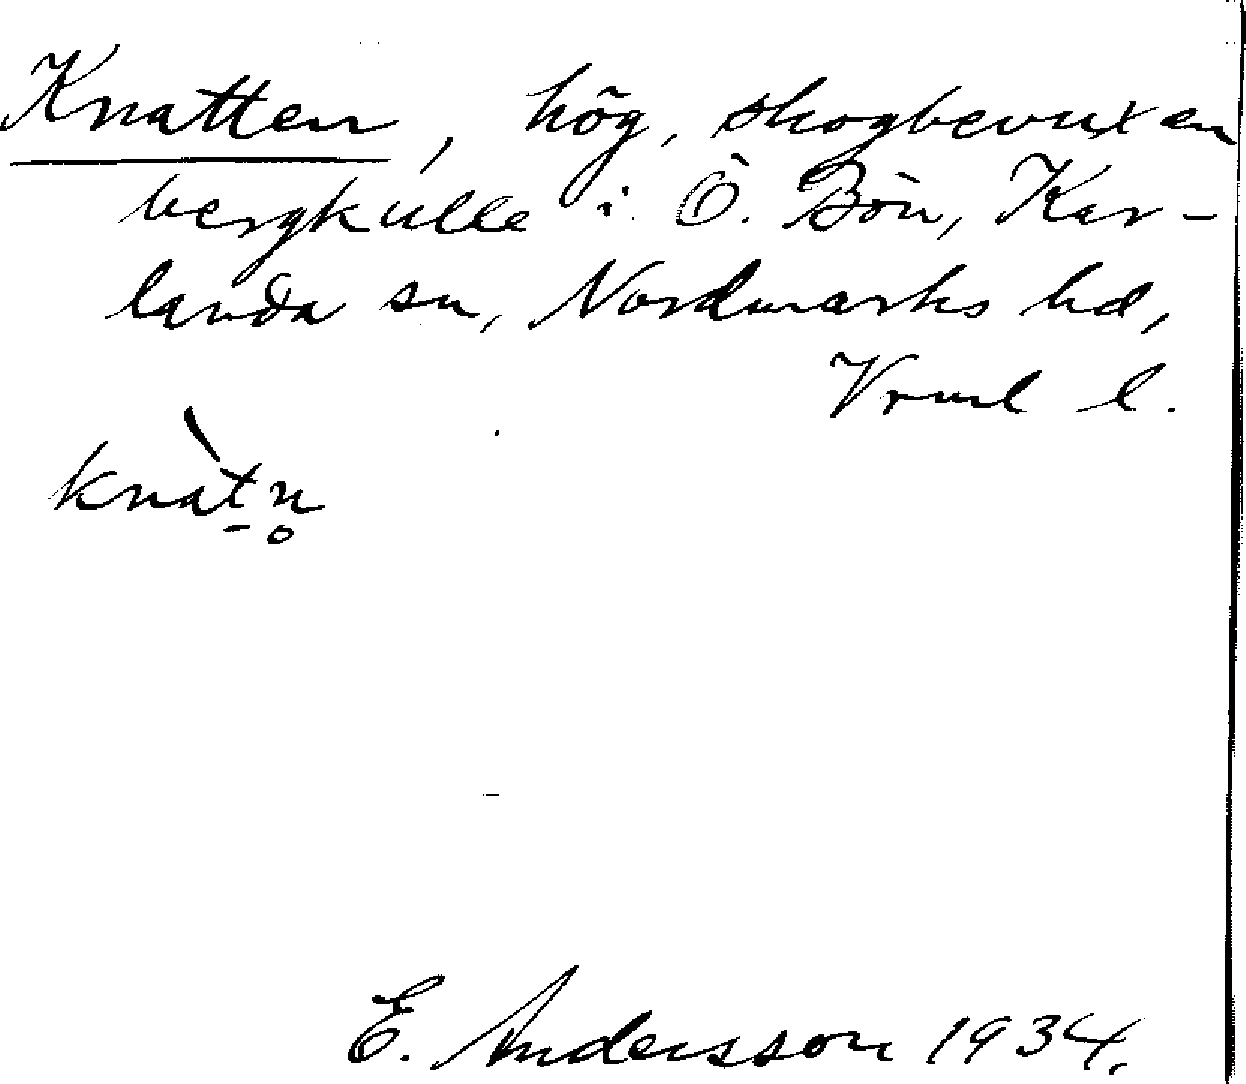 Knatten, hög, skogbevuxen
bergkulle i Ö. Bön, Kar-
landa sn, Nordmarks hd,
Vrml l.
knàt̠n̥
E. Andersson 1934.